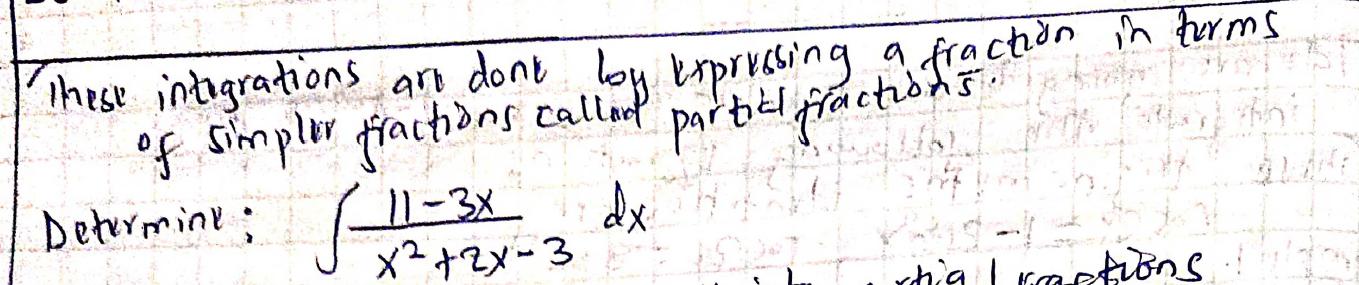 These integrations are done by expressing a fraction in terms
of simpler fractions called partial fractions.
Determine: ∫ (11-3x)/(x²+2x-3) dx